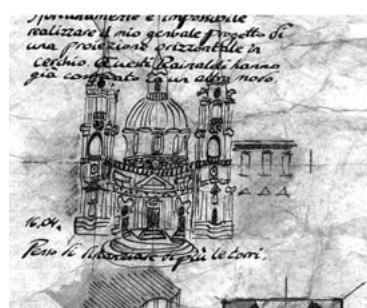 Sfortunatamente è impossibile
realizzare il mio geniale progetto di
una proiezione orizzontale in
cerchio. Questi Rainaldi hanno
già costruito in un altro
16.04.
Penso di distanziare di più le torri.